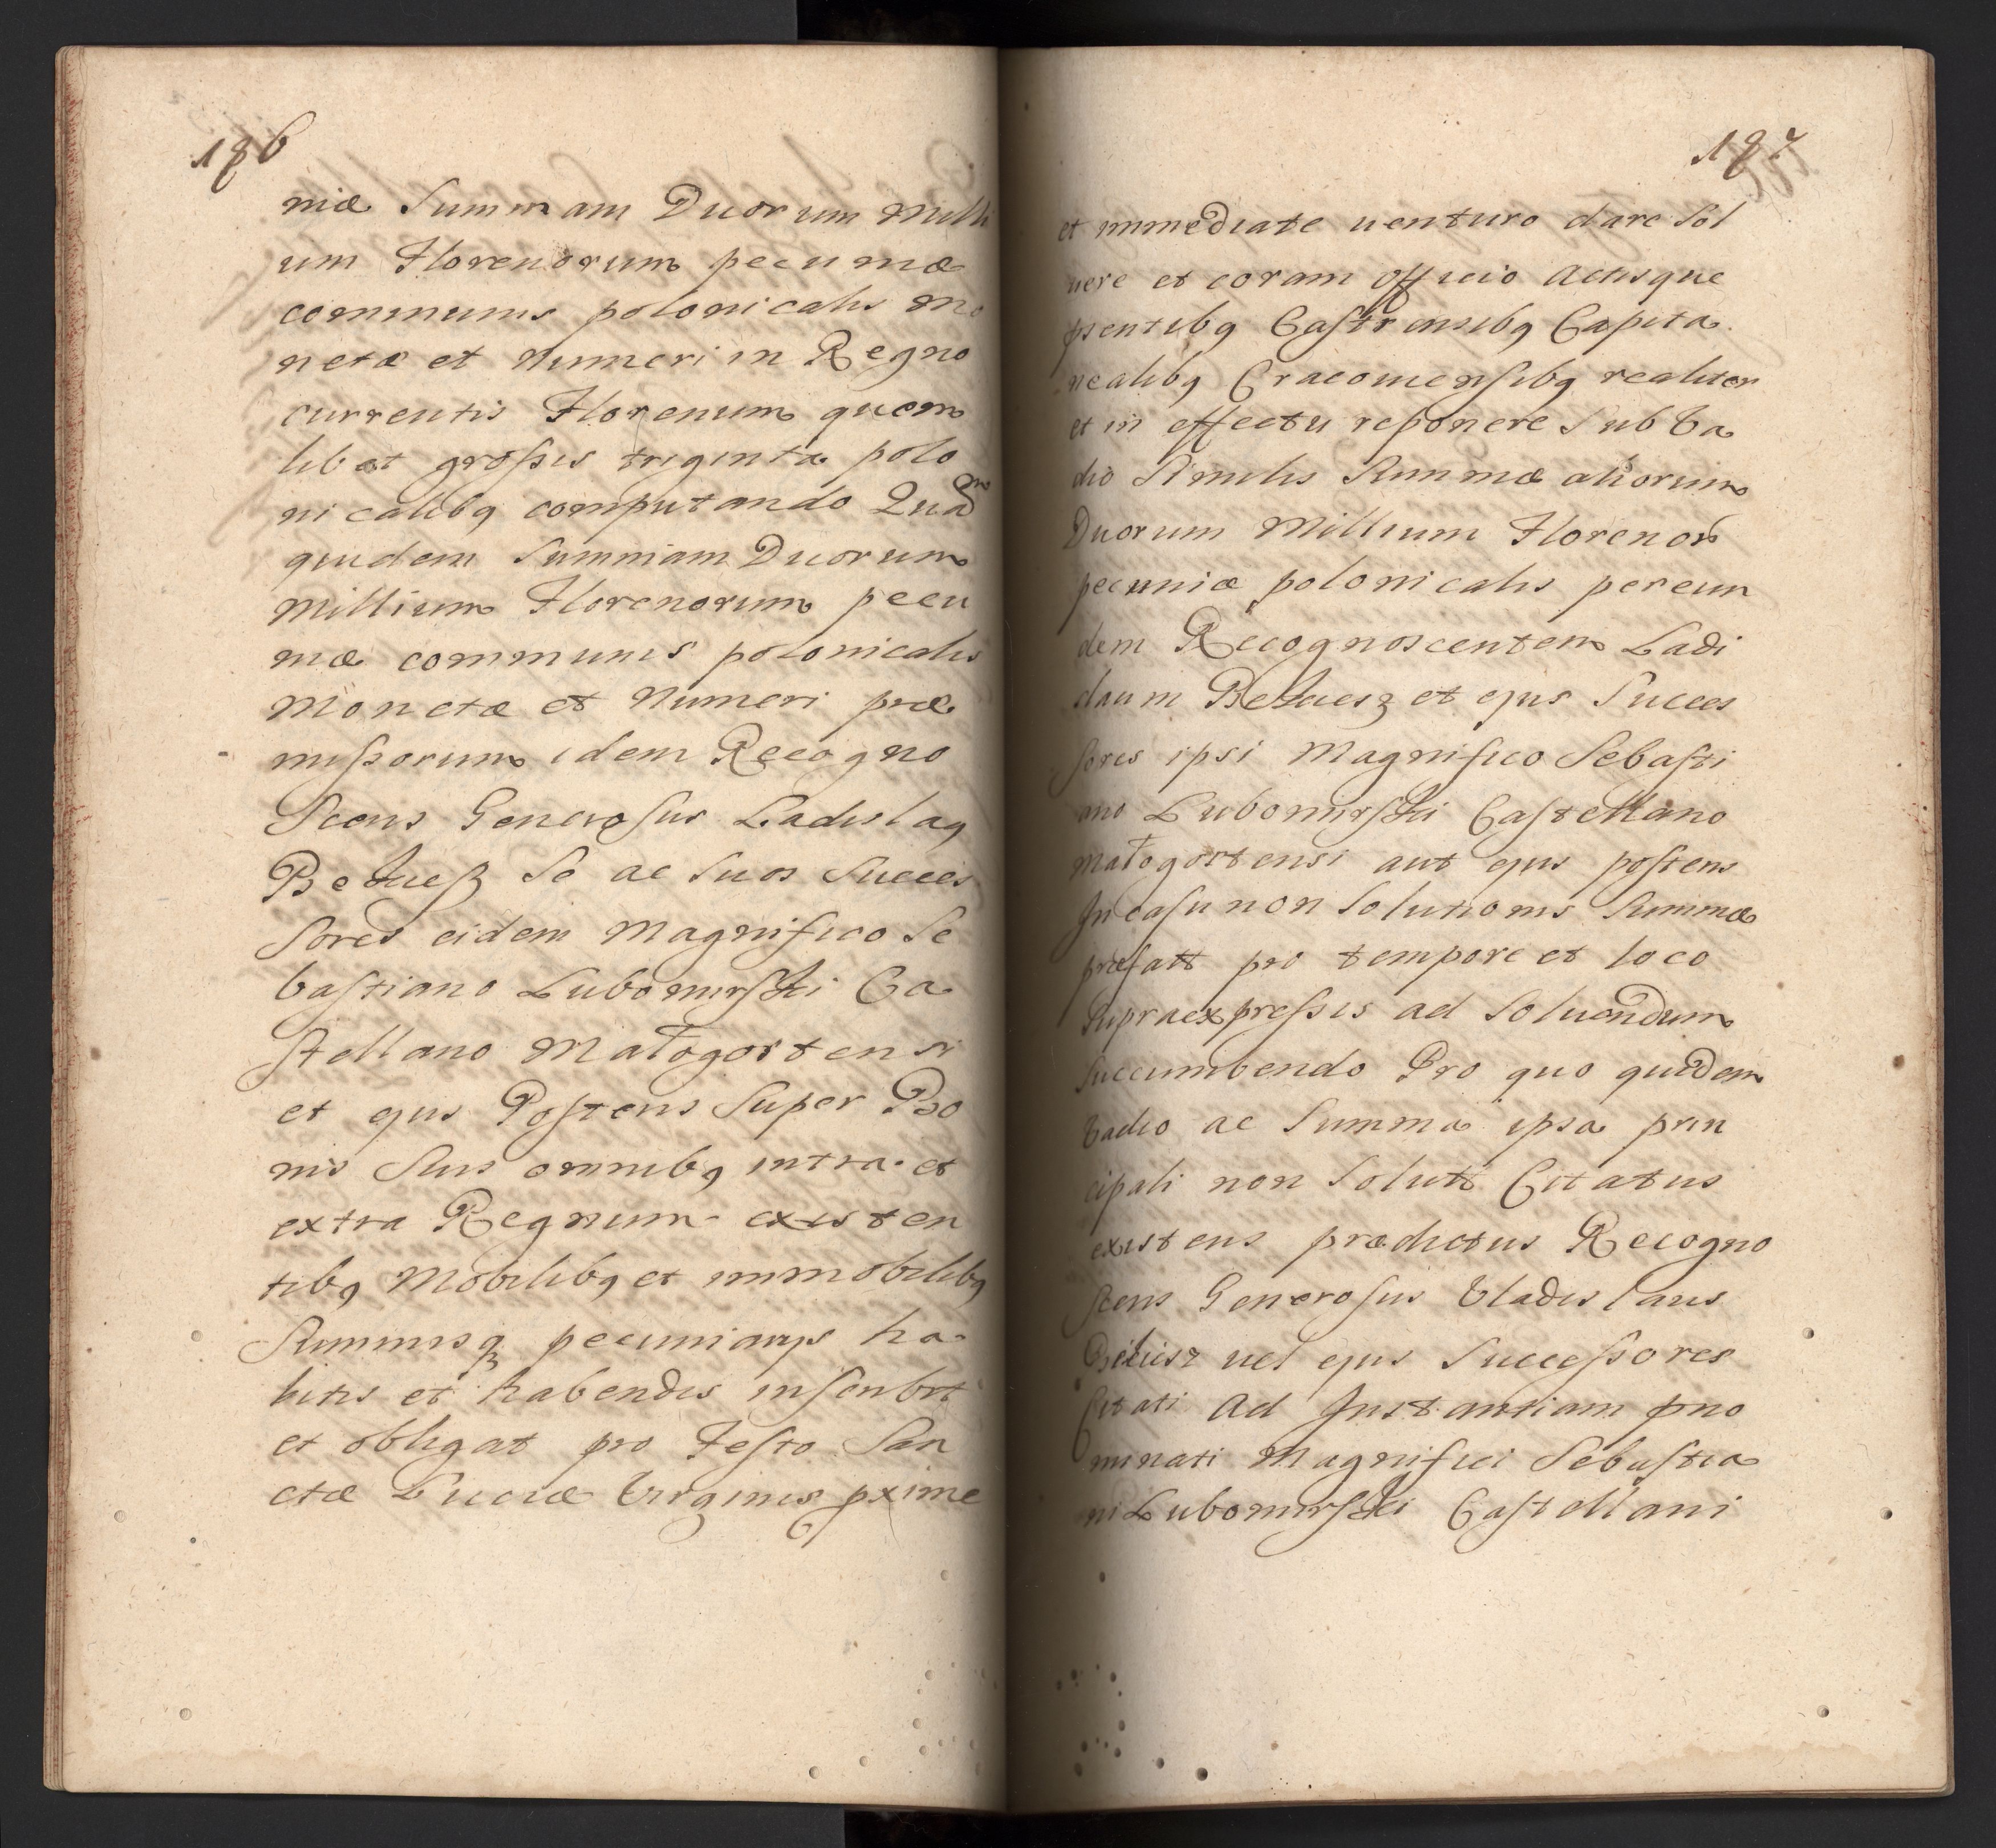 186
niæ Summam Duorum Milli
um Florenorum pecuniæ
communis polonicalis Mo
netæ et Numeri in Regno
currentis Florenum quem
libet grossis triginta polo
nicalibq computando Quam
quidem Summam Duorum
Millium Florenorum pecu
niæ communis polonicalis
Monetæ et Numeri præ
missorum idem Recogno
Scens Generosus Ladislaq
Bełuesz Se ac Suos Succes
Sores eidem Magnifico Se
bastiano Lubomirski Ca
stellano Małogostensi
et ejus Postens Super Bo
nis Suis omnibq intra et
extra Regnum existen
tibq Mobilibq et immobilibq
Summisq pecuniarys ha
bitis et habendis inscribit
et obligat pro Festo San
ctæ Luciæ Virginis pxime
187
et immediate venturo dare Sol
uere et coram Officio Actisque
psentibq Castrensibq Capita
nealibq Cracouiensibq realiter
et in effectu reponere Sub Va
dio Similis Summæ aliorum
Duorum Millium Florenor
pecuniæ polonicalis per eun
dem Recognoscentem Ladi
slaum Bełuesz et ejus Succes
sores ipsi Magnifico Sebasti
ano Lubomirski Castellano
Małogostensi aut ejus postens
In casu non Solutionis Summæ
præfatt pro tempore et loco
Supraexpressis ad Soluendum
Succumbendo Pro quo quidem
Vadio ac Summa ipsa prin
cipali non Solutt Citatus
existens prædictus Recogno
scens Generosus Vladislaus
Bełuesz uel ejus Successores
Citati Ad Instantiam pno
minati Magnifici Sebastia
ni Lubomirski Castellani